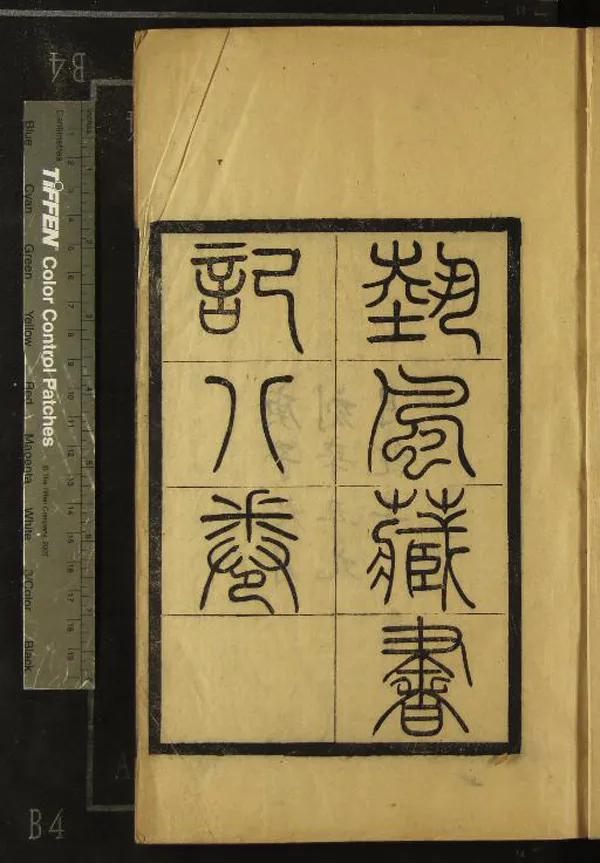 藝風藏書
記八卷
B4
B4
TIFFEN Color Control Patches
© The Tiffen Company, 2007
Centimetres
Inches
Blue Cyan Green Yellow Red Magenta White 3/Color Black
1 2 3 4 5 6 7 8 9 10 11 12 13 14 15 16 17 18 19
1 2 3 4 5 6 7